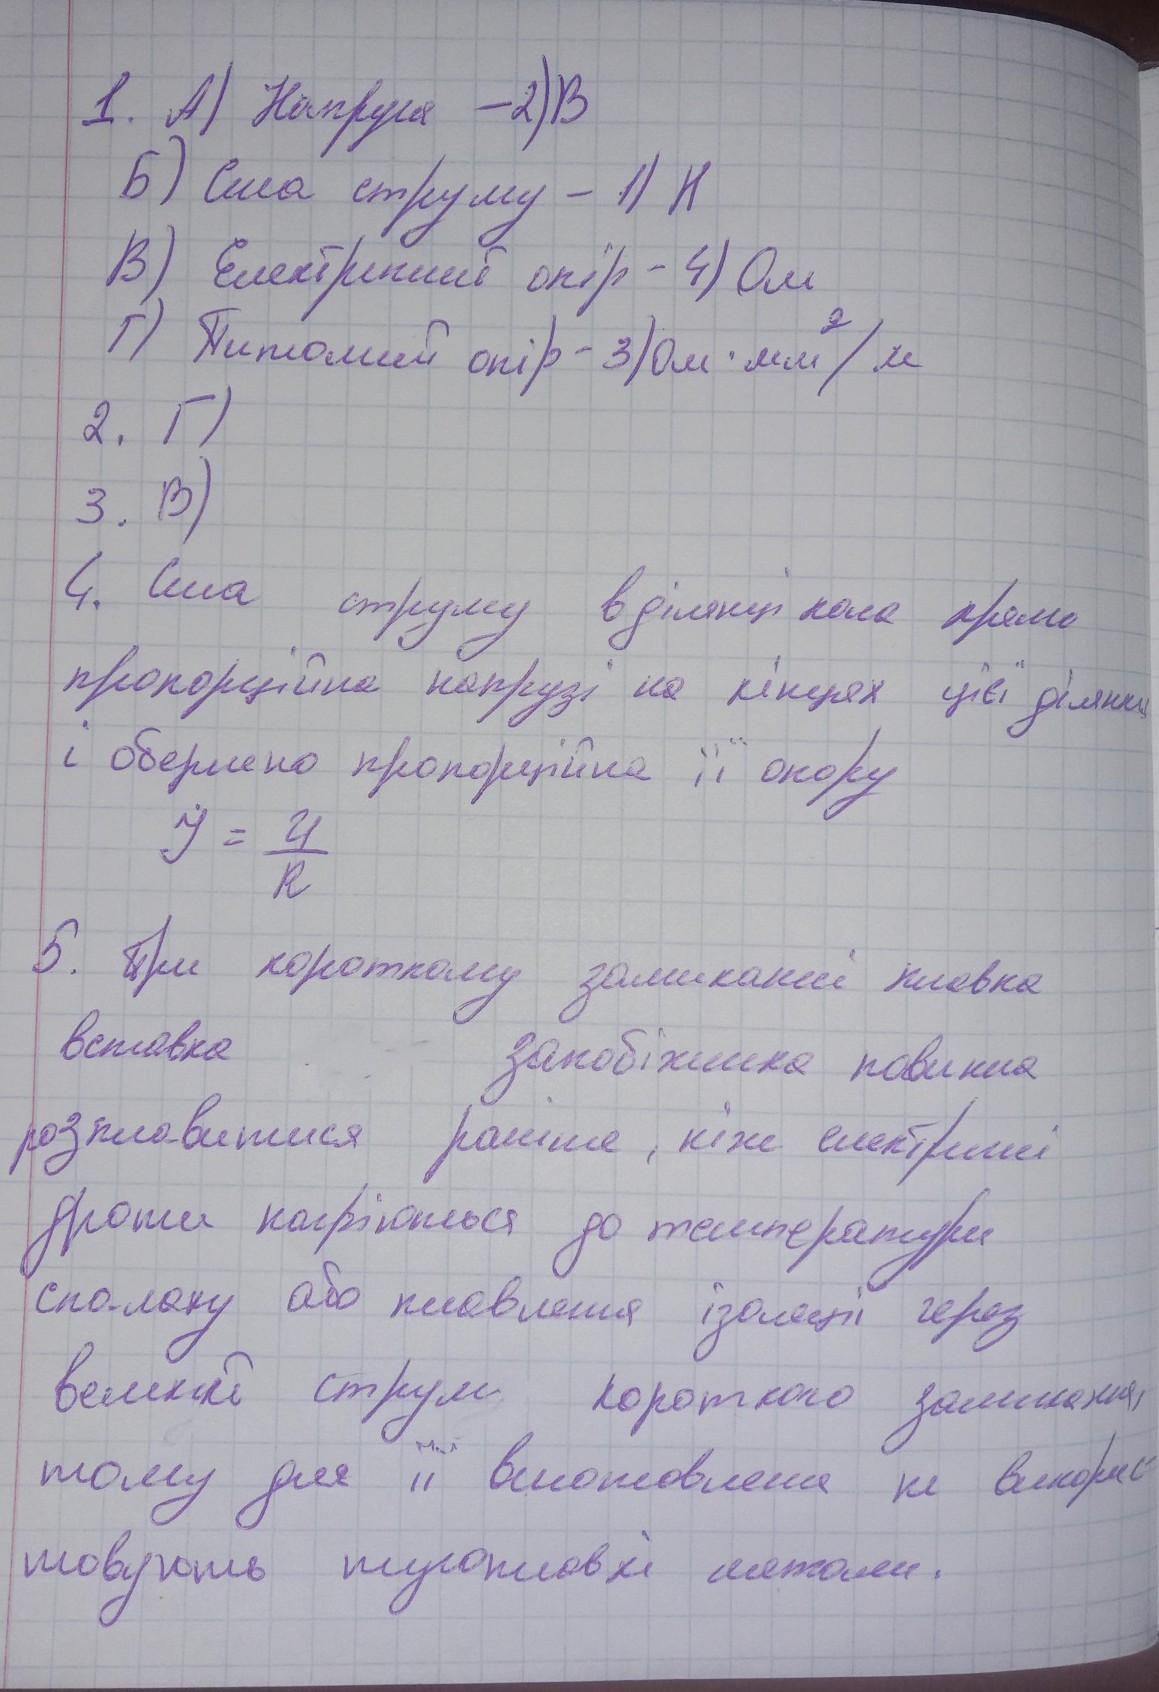 1. А) Напруга – 2) В
Б) Сила струму – 1) А
В) Електричний опір – 4) Ом
Г) Питомий опір – 3) Ом · мм²/м
2. Г)
3. В)
4. Сила струму в ділянці кола прямо
пропорційна напрузі на кінцях цієї ділянки
і обернено пропорційна її опору
I = U/R
5. При короткому замиканні плавка
вставка запобіжника повинна
розплавитися раніше, ніж електричні
дроти нагріються до температури
спалаху або плавлення ізоляції через
великий струм короткого замикання,
тому для її виготовлення не викорис
товують тугоплавкі метали.